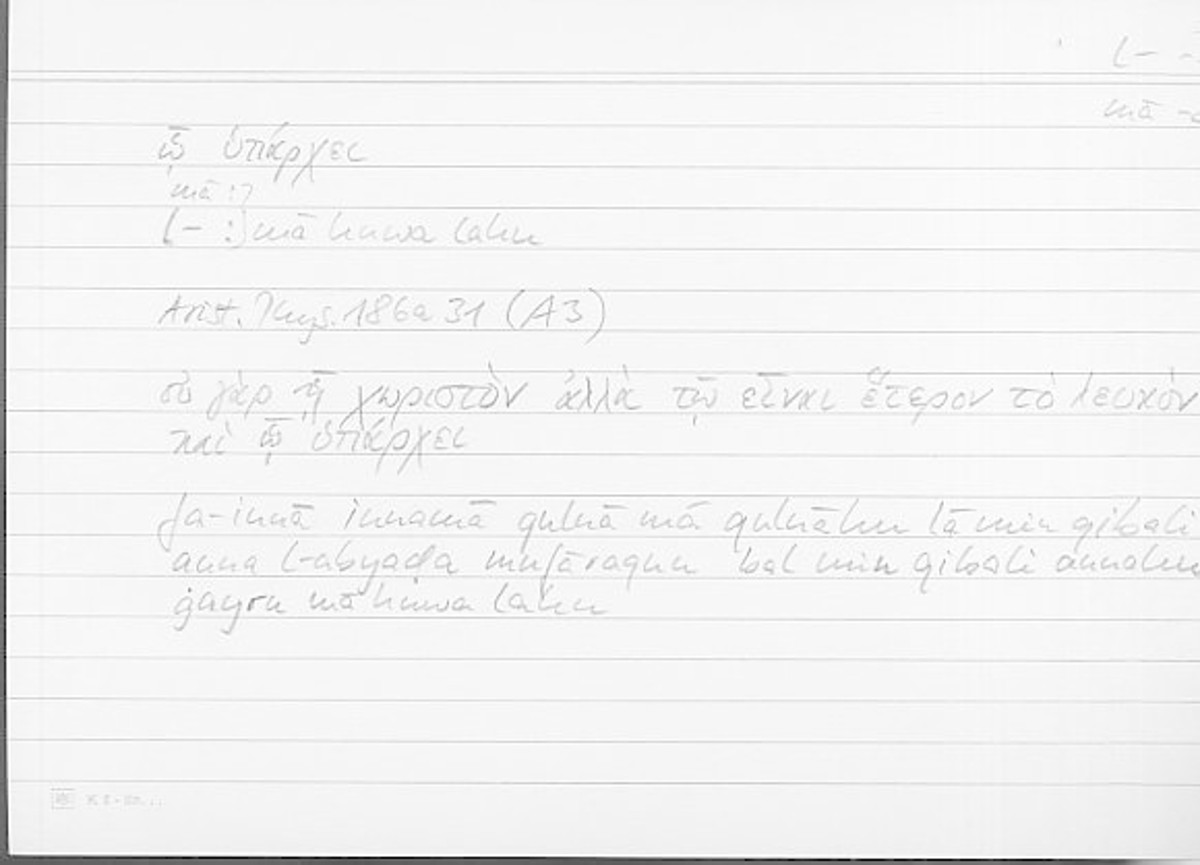 mā
ᾧ ὑπάρχει
mā :]
[- :] mā huwa lahu
Arist. Phys. 186a 31 (A3)
οὐ γὰρ ᾗ χωριστὸν ἀλλὰ τῷ εἶναι ἕτερον τὸ λευκὸν
καὶ ᾧ ὑπάρχει
fa-innā innamā qulnā mā qulnāhu lā min qibali
anna l-abyaḍa mufāraqun bal min qibali annahu
ġayru mā huwa lahu